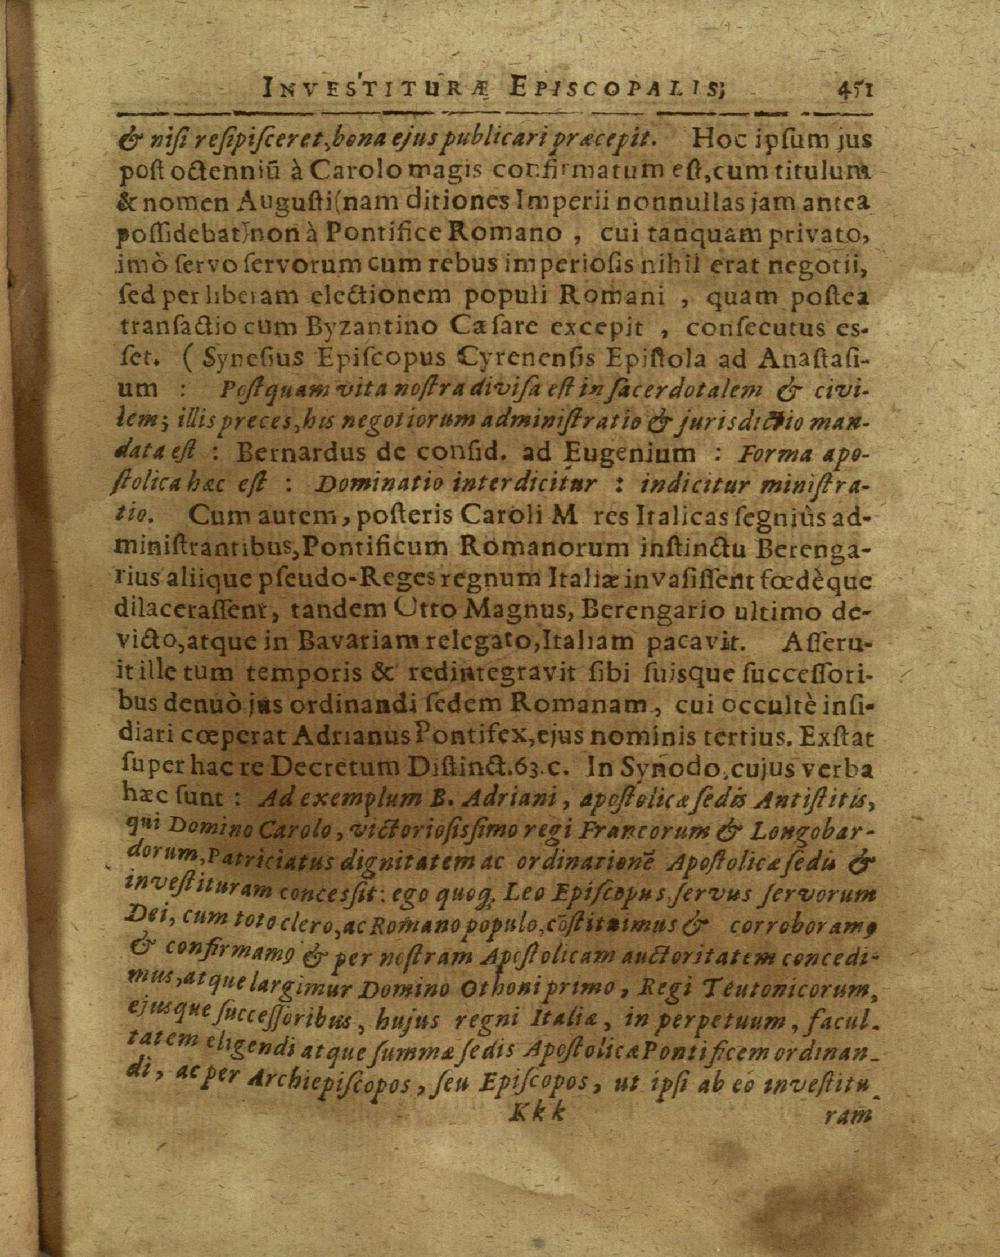 INVESTITURÆ EPISCOPALIS; 451
& niſi reſipiſceret, bona ejus publicari præcepit. Hoc ipſum jus
poſt octenniū à Carolo magis confirmatum eſt, cum titulum
& nomen Auguſti (nam ditiones Imperii nonnullas jam antea
poſſidebat) non à Pontifice Romano , cui tanquam privato,
imò ſervo ſervorum cum rebus imperioſis nihil erat negotii,
ſed per liberam electionem populi Romani , quam poſtea
tranſactio cum Byzantino Cæſare excepit , conſecutus eſ-
ſet. ( Syneſius Epiſcopus Cyrenenſis Epiſtola ad Anaſtaſi-
um : Poſtquam vita noſtra diviſa eſt in ſacerdotalem & civi-
lem; illis preces, his negotiorum adminiſtratio & jurisdictio man-
data eſt : Bernardus de conſid. ad Eugenium : Forma apo-
ſtolica hæc eſt : Dominatio interdicitur : indicitur miniſtra-
tio. Cum autem, poſteris Caroli M res Italicas ſegniùs ad-
miniſtrantibus, Pontificum Romanorum inſtinctu Berenga-
rius aliique pſeudo-Reges regnum Italiæ invaſiſſent fœdèque
dilaceraſſent, tandem Otto Magnus, Berengario ultimo de-
victo, atque in Bavariam relegato, Italiam pacavit. Aſſeru-
it ille tum temporis & redintegravit ſibi ſuisque ſucceſſori-
bus denuò jus ordinandi ſedem Romanam, cui occultè inſi-
diari cœperat Adrianus Pontifex, ejus nominis tertius. Exſtat
ſuper hac re Decretum Diſtinct. 63. c. In Synodo, cujus verba
hæc ſunt : Ad exemplum B. Adriani, apoſtolicæ ſedis Antiſtitis,
qui Domino Carolo, victorioſisſimo regi Francorum & Longobar-
dorum, Patriciatus dignitatem ac ordinationē Apoſtolicæ ſedis &
inveſtituram concesſit: ego quoq; Leo Epiſcopus, ſervus ſervorum
Dei, cum toto clero, ac Romano populo, cōſtituimus & corroboramꝰ
& confirmamꝰ & per noſtram Apoſtolicam auctoritatem concedi-
mus, atque largimur Domino Othoni primo, Regi Teutonicorum,
ejusque ſucceſſoribus, hujus regni Italiæ, in perpetuum, facul-
tatem eligendi atque ſummæ ſedis Apoſtolicæ Pontificem ordinan-
di, ac per Archiepiſcopos, ſeu Epiſcopos, ut ipſi ab eo inveſtitu-
Kkk ram